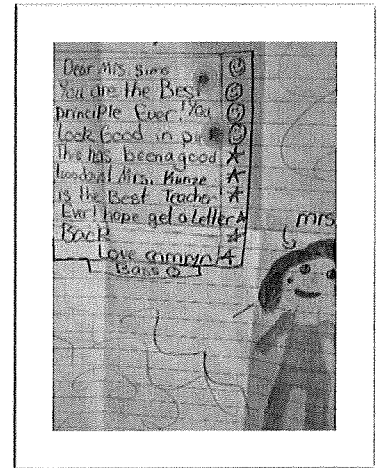 Dear Mrs. Sims
You are the Best
principle Ever! You
Look Good in
This has been a good
Mrs. Kunze
is the Best Teacher
Ever I hope get a Letter
Back
Love
Bass
mrs